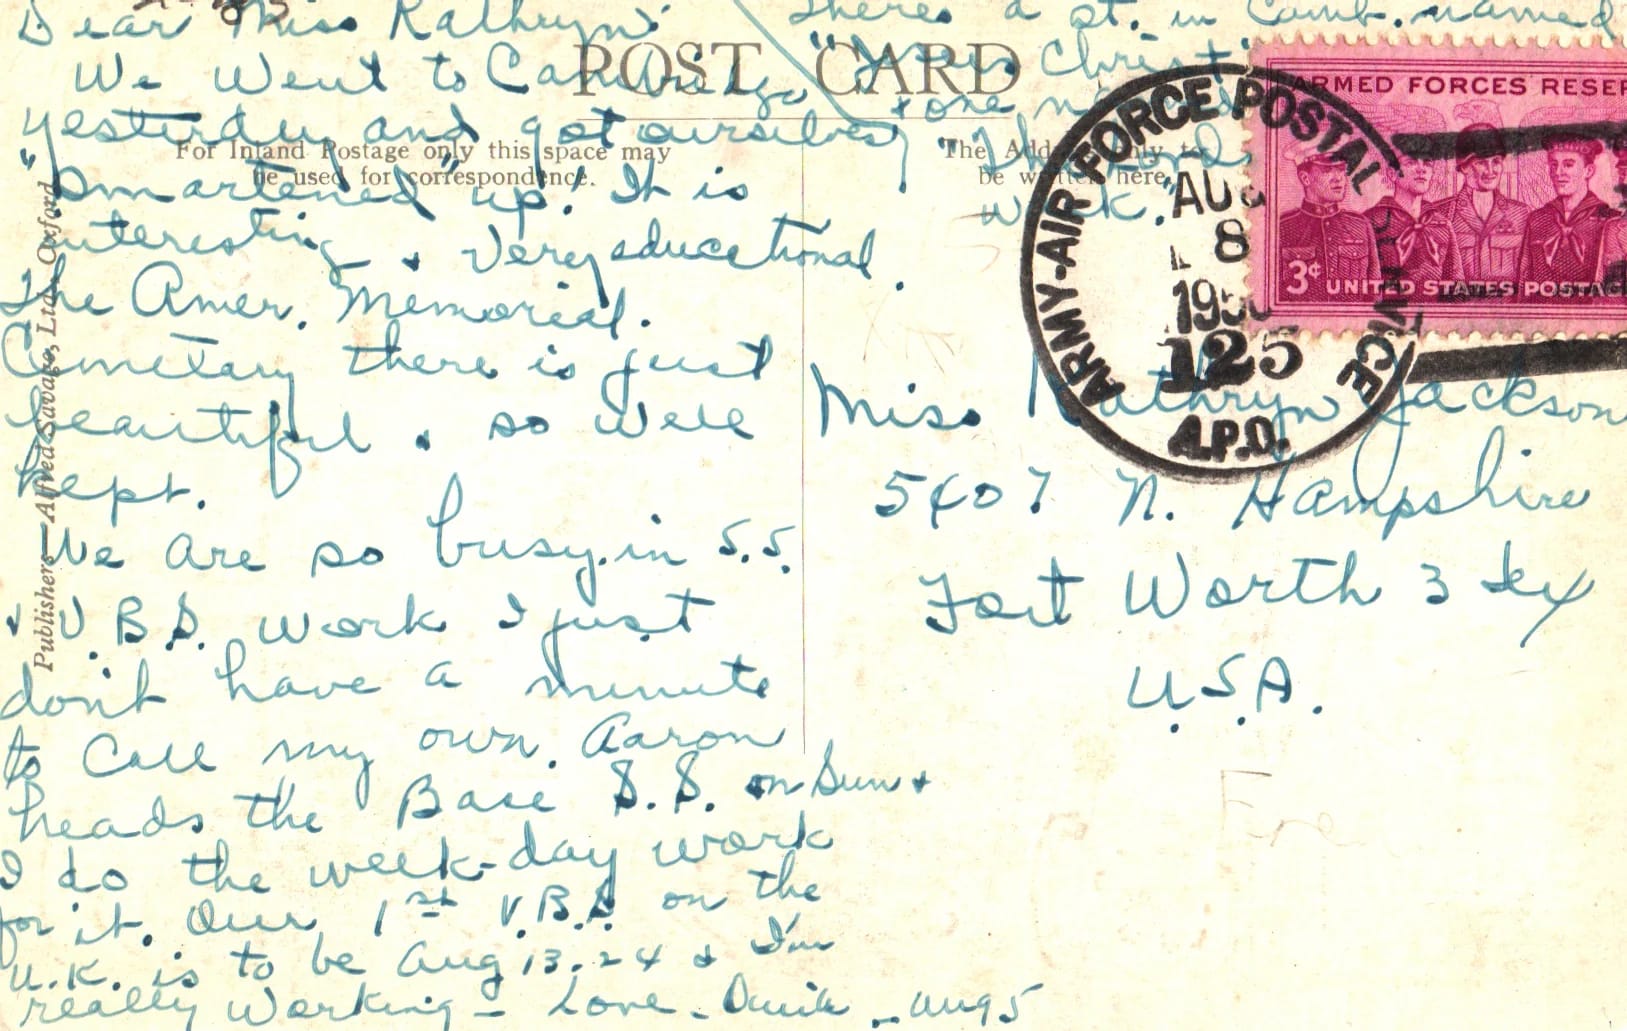 Dear Miss Kathryn:
We Went to Cambridge
yesterday and got ourselves
"smartened" up! It is
interesting & very educational.
The Amer. Memorial.
Cemetary there is just
beautiful & so well
kept.
We are so busy in S.S.
& V.B.S. work I just
don't have a minute
to call my own. Aaron
heads the Base S.S. on Sun &
I do the week-day work
for it. Our 1st V.B.S on the
U.K. is to be Aug 13-24 & I'm
really working - Love - Aug 5
There's a st. in Camb. named
"Jesus Christ"
& one named
week.
POST CARD
For Inland Postage only this space may
be used for correspondence.
The Address only to
be written here.
Publishers—Alfred Savage, Ltd., Oxford
ARMY-AIR FORCE POSTAL SERVICE
AUG
8
125
A.P.O.
ARMED FORCES RESER
3¢ UNITED STATES POSTAG
Miss Kathryn Jackson
5407 N. Hampshire
Fort Worth 3 Tex
U.S.A.